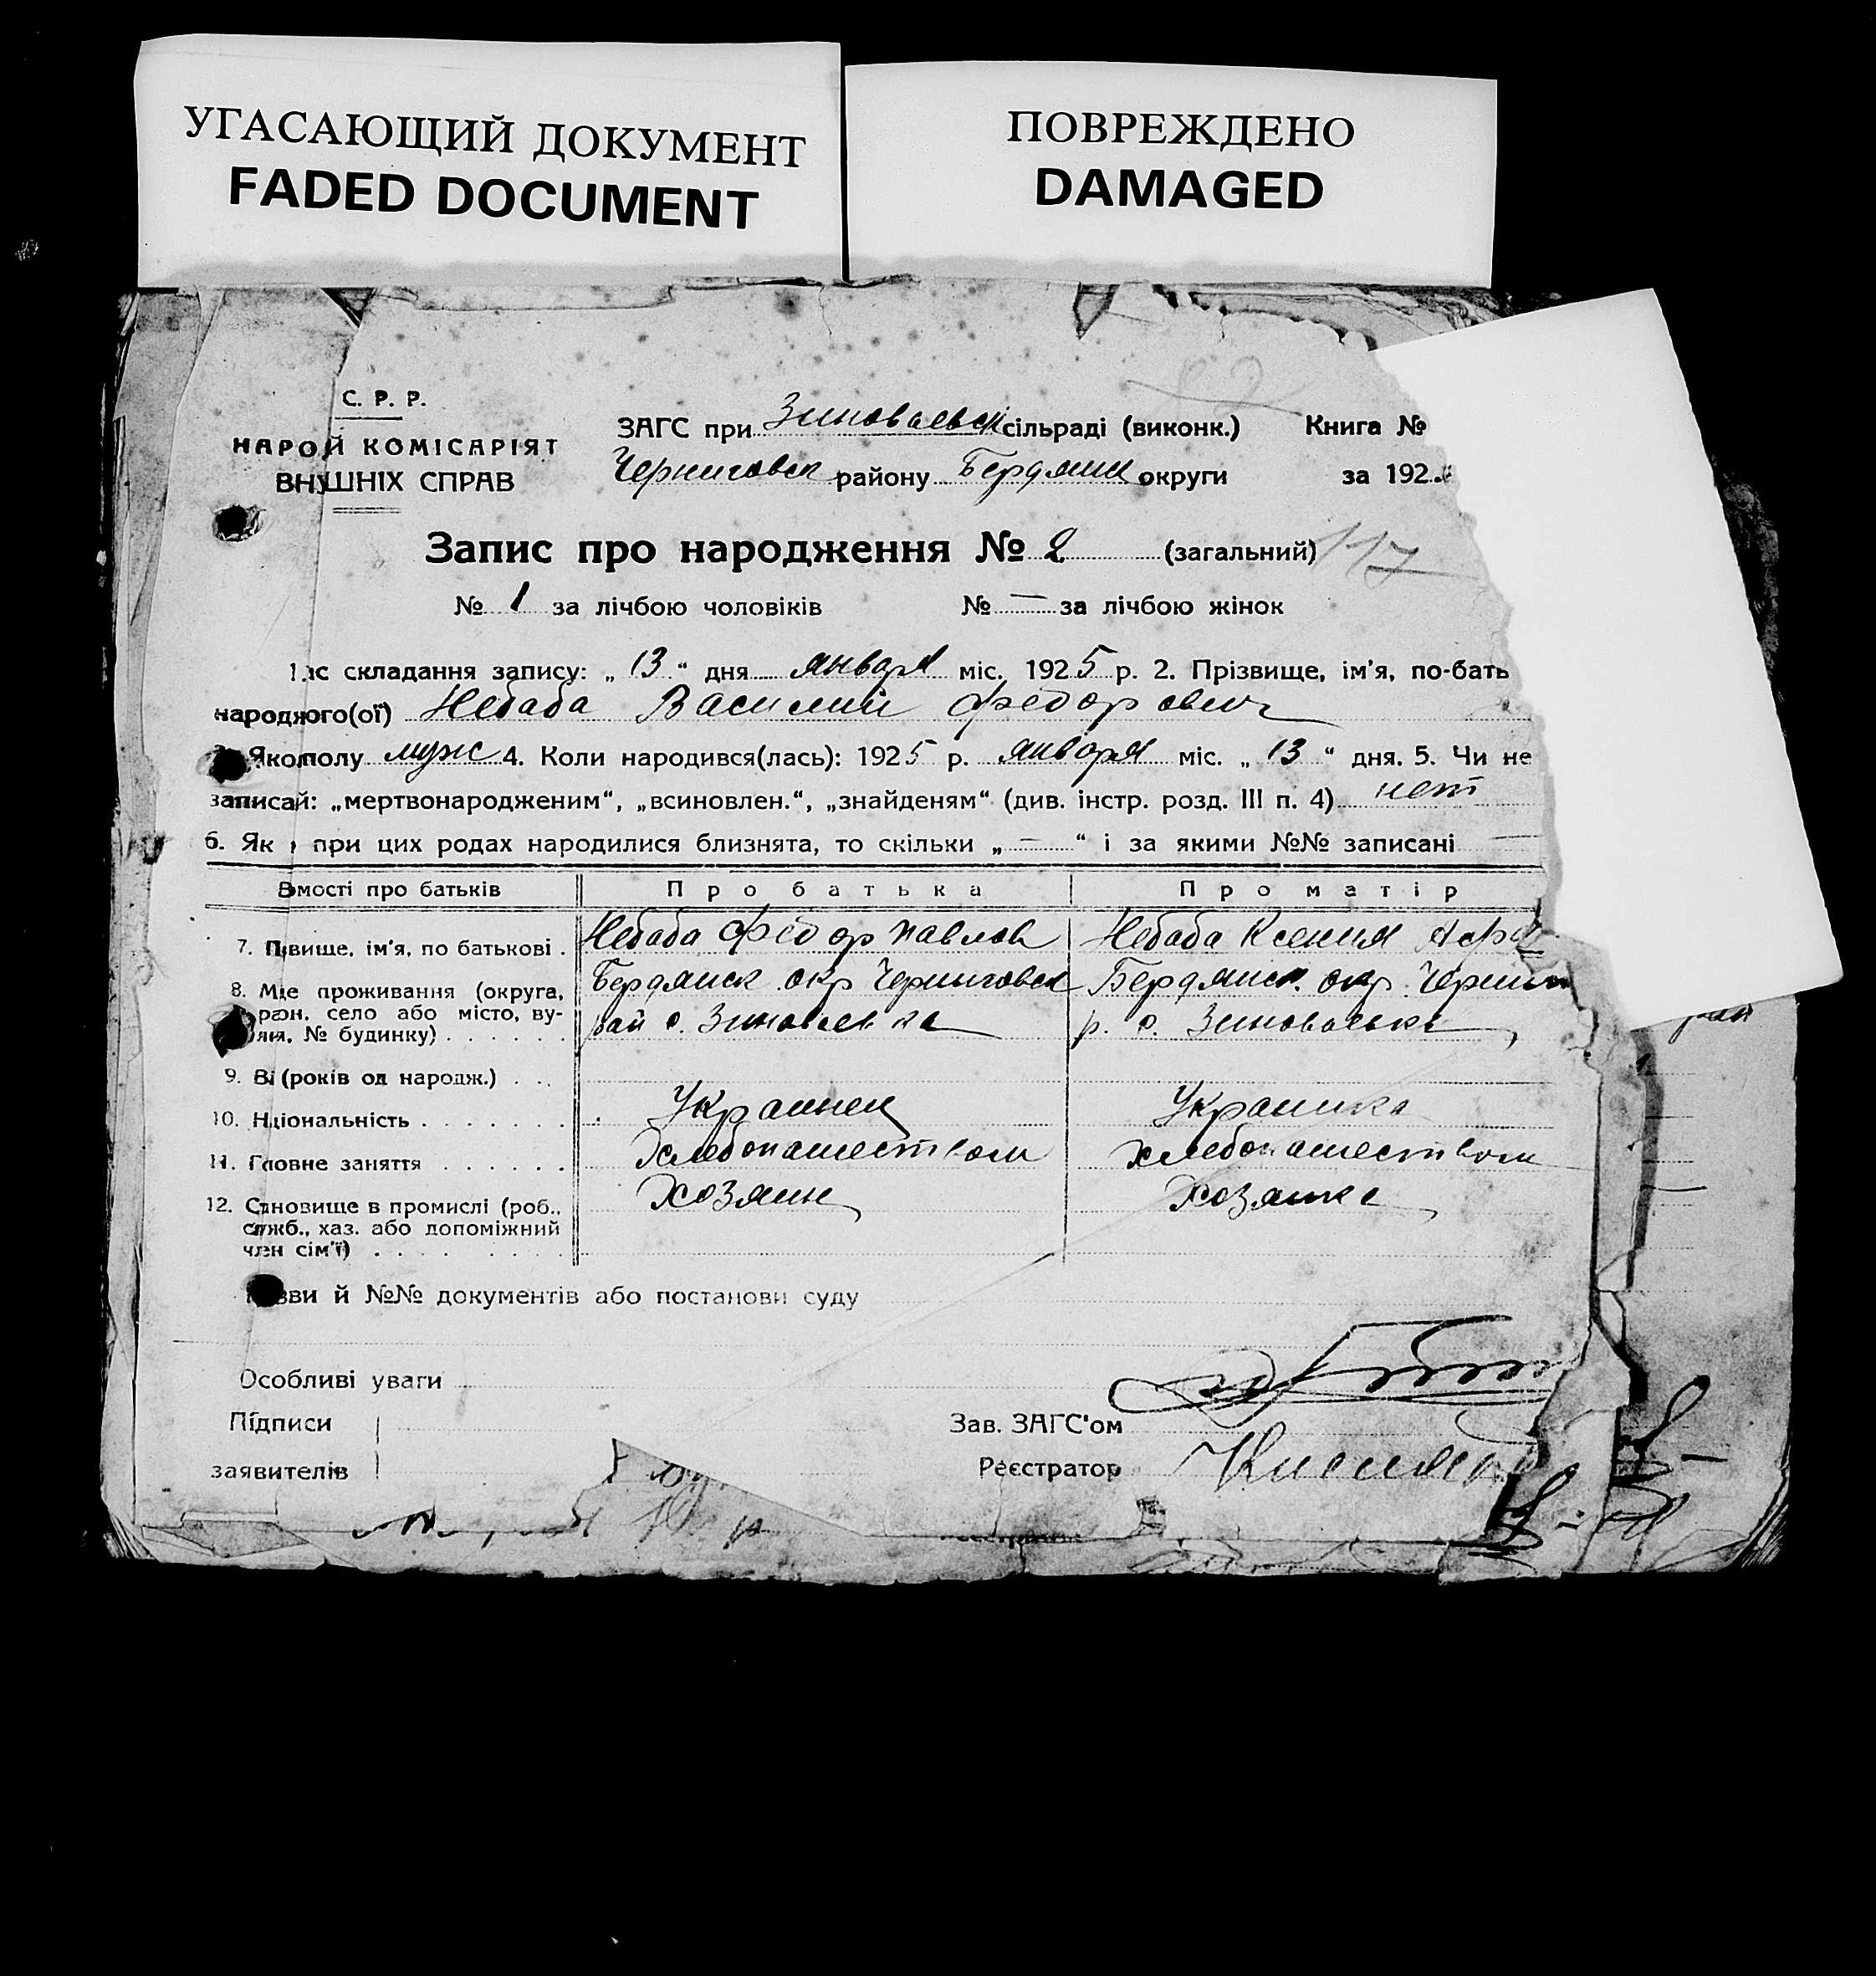 УГАСАЮЩИЙ ДОКУМЕНТ
FADED DOCUMENT
ПОВРЕЖДЕНО
DAMAGED
С. Р. Р.
НАРОЙ КОМІСАРІЯТ
ВНУШНІХ СПРАВ
ЗАГС при Зиновьевск сільраді (виконк.) Книга №
Черниговск району Бердянск округи за 192
Запис про народження № 2 (загальний) 117
№ 1 за лічбою чоловіків № — за лічбою жінок
1. ас складання запису: „ 13 “ дня января міс. 1925 р. 2. Прізвище, ім'я, по-бать
народжого(ої) Небаба Василий Федорович
Якополу муж 4. Коли народився(лась): 1925 р. января міс. „ 13 “ дня. 5. Чи не
записай: „мертвонародженим“, „всиновлен.“, „знайденям“ (див. інстр. розд. III п. 4) нет
6. Як при цих родах народилися близнята, то скільки „ — “ і за якими №№ записані —
Вмості про батьків Про батька Про матір
7. Пвище, ім'я, по батькові . Небаба Федор Павлов Небаба Ксения
8. Мце проживання (округа, Бердянск окр Черниговск Бердянск. окр. Черниг
село або місто, ву- рай с. Зиновьевка р. с. Зиновьевка
№ будинку) . . . . . .
9. Ві (років од народж.) . . .
10. Нціональність . . . . . . . Украинец Украинка
11. Гловне заняття . . . . . . Хлебопашеством хлебопашеством
12. Становище в промислі (роб., Хозяин Хозяйка
служб., хаз. або допоміжний
член сім'ї) . . . . . . . .
зви й №№ документів або постанови суду
Особливі уваги
Підписи Зав. ЗАГС'ом
заявителів Реєстратор